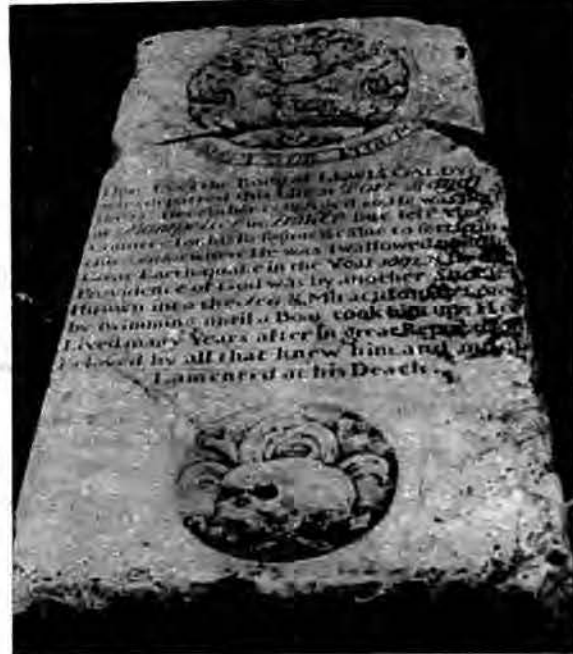 Here lyes the Body of LEWIS GALDY
who departed this Life at Port Royal
December
at Montpelier in France but left that
Country for his Religion & came to settle in
this where He was swallowed up in the
Great Earth-quake in the Year 1692 & By the
Providence of God was by another Shock
thrown into the Sea & Miraculously saved
by swimming until a Boat took him up: He
Lived many Years after in great Reputation
Beloved by all that knew him and much
Lamented at his Death